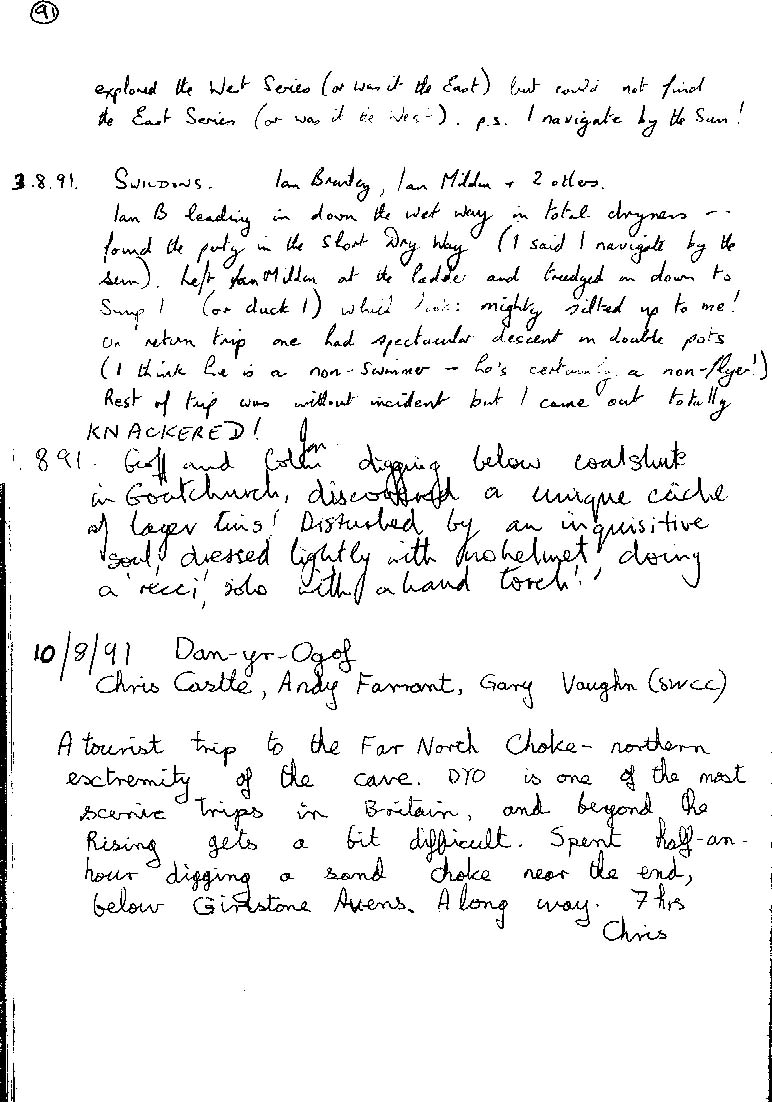 91
explored the West Series (or was it the East) but could not find
the East Series (or was it the West). p.s. I navigate by the Sun!
3.8.91. SWILDONS. Ian Brantley, Ian Milden + 2 others.
Ian B leading in down the wet way in total dryness --
found the party in the Short Dry Way (I said I navigate by the
sun). Left Ian Milden at the ladder and trudged on down to
Sump 1 (or duck 1) which looks mighty silted up to me!
On return trip one had spectacular descent on double pots
(I think he is a non-swimmer - he's certainly a non-flyer!)
Rest of trip was without incident but I came out totally
KNACKERED!
.891. Geoff and digging below coalshute
in Goatchurch, discovered a unique câche
of lager tins! Disturbed by an inquisitive
'soul', dressed lightly with no helmet, doing
a 'recci', solo with a hand torch!!
10/8/91 Dan-yr-Ogof
Chris Castle, Andy Farrant, Gary Vaughn (SWCC)
A tourist trip to the Far North Choke - northern
exctremity of the cave. DYO is one of the most
scenic trips in Britain, and beyond the
Rising gets a bit difficult. Spent half-an-
hour digging a sand choke near the end,
below Girtstone Avens. A long way. 7 hrs
Chris